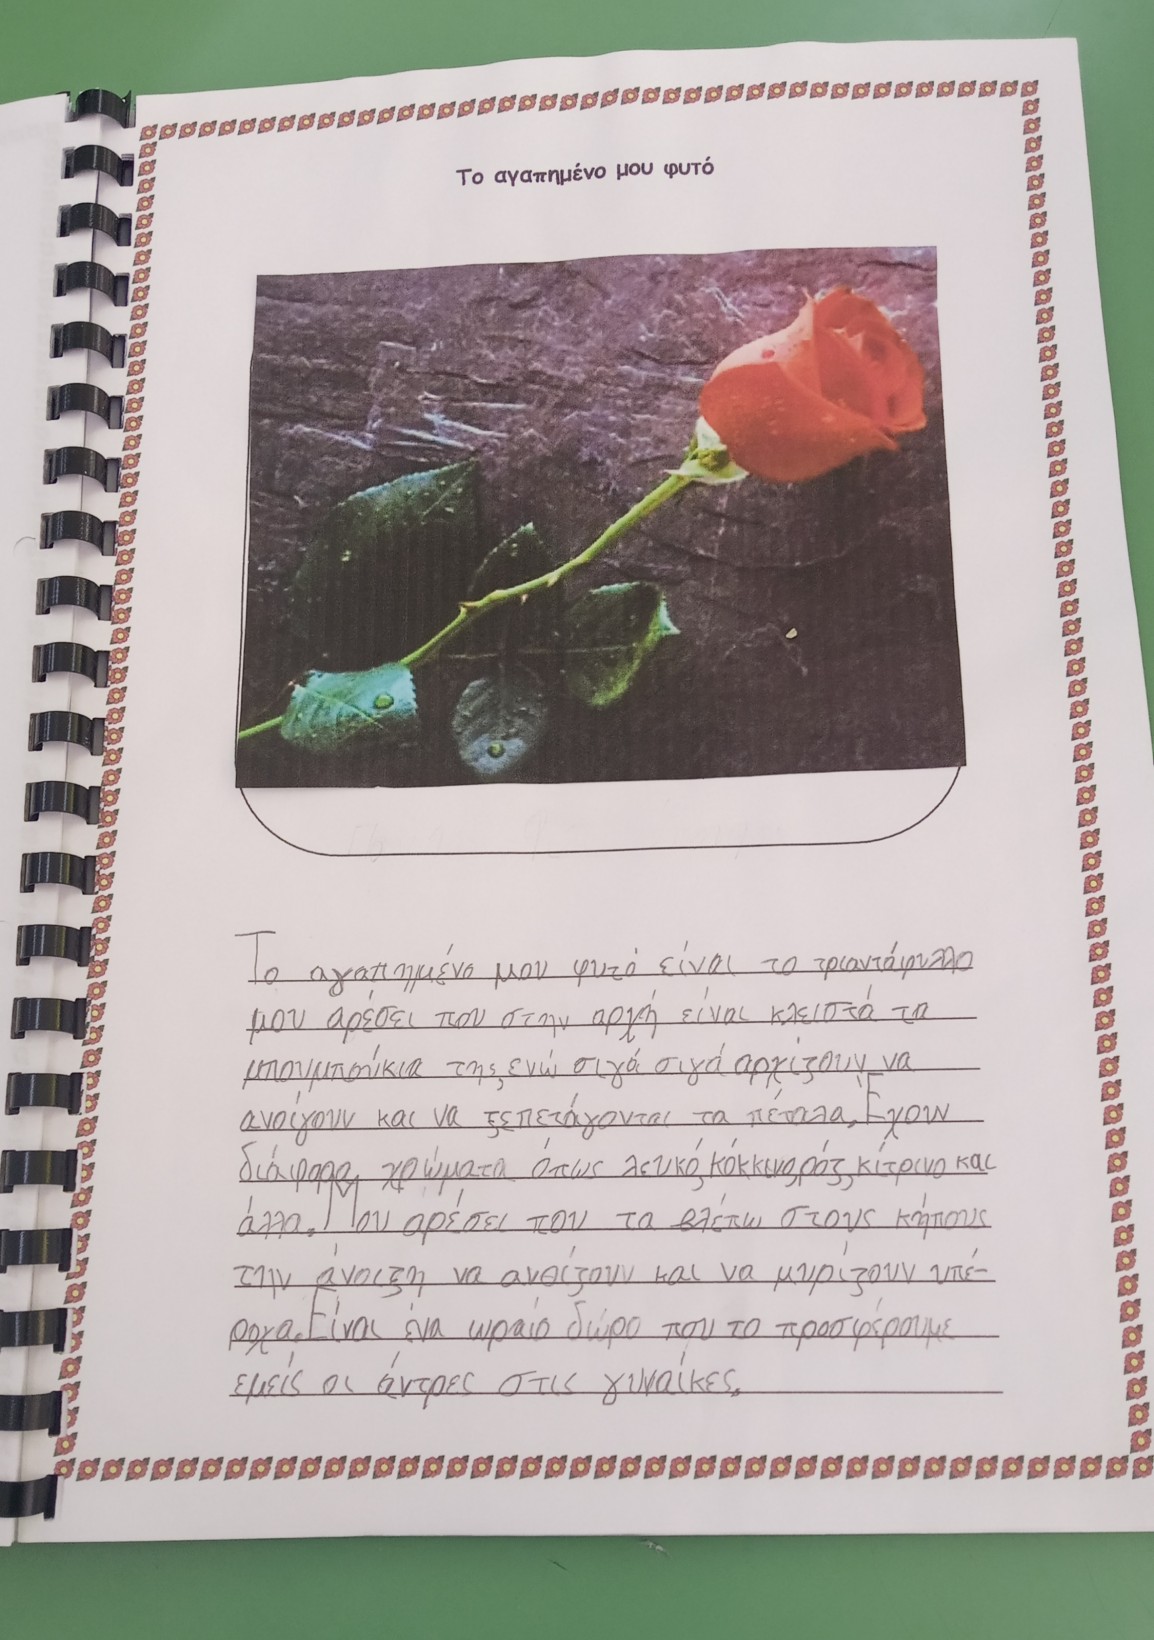 Το αγαπημένο μου φυτό
Το αγαπημένο μου φυτό είναι το τριαντάφυλλο
μου αρέσει που στην αρχή είναι κλειστά τα
μπουμπούκια της, ενώ σιγά σιγά αρχίζουν να
ανοίγουν και να ξεπετάγονται τα πέταλα. Έχουν
διάφορα χρώματα όπως λευκό, κόκκινο, ρόζ, κίτρινο και
άλλα. Μου αρέσει που τα βλέπω στους κήπους
την άνοιξη να ανθίζουν και να μυρίζουν υπέ-
ροχα. Είναι ένα ωραίο δώρο που το προσφέρουμε
εμείς οι άντρες στις γυναίκες.